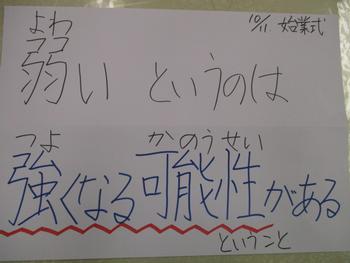 10/11 始業式
よわ
弱い というのは
つよ かのうせい
強くなる可能性がある
ということ